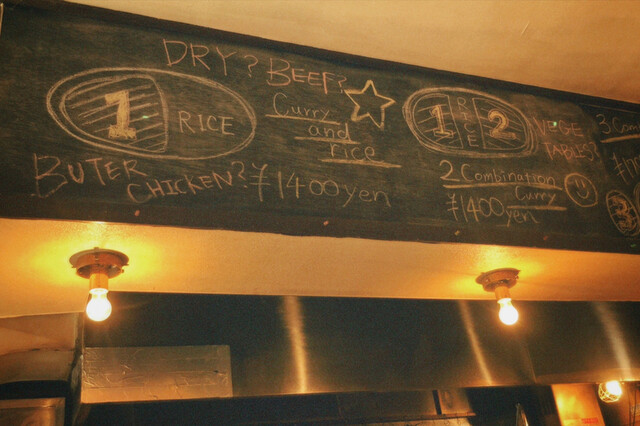 DRY? BEEF?
1 RICE
Curry
and
rice
BUTER
CHICKEN?
¥1400yen
1 RICE 2
VEGE
TABLES?
2 Combination
Curry
¥1400
yen
3 Com